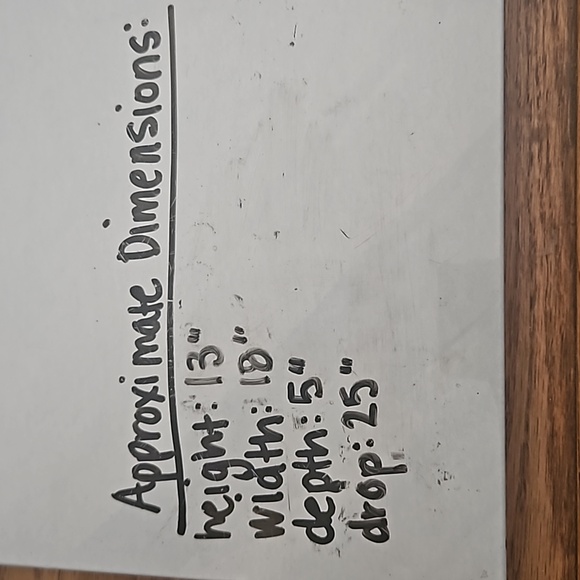 Approximate Dimensions:
height: 13"
width: 18"
depth: 5"
drop: 25"